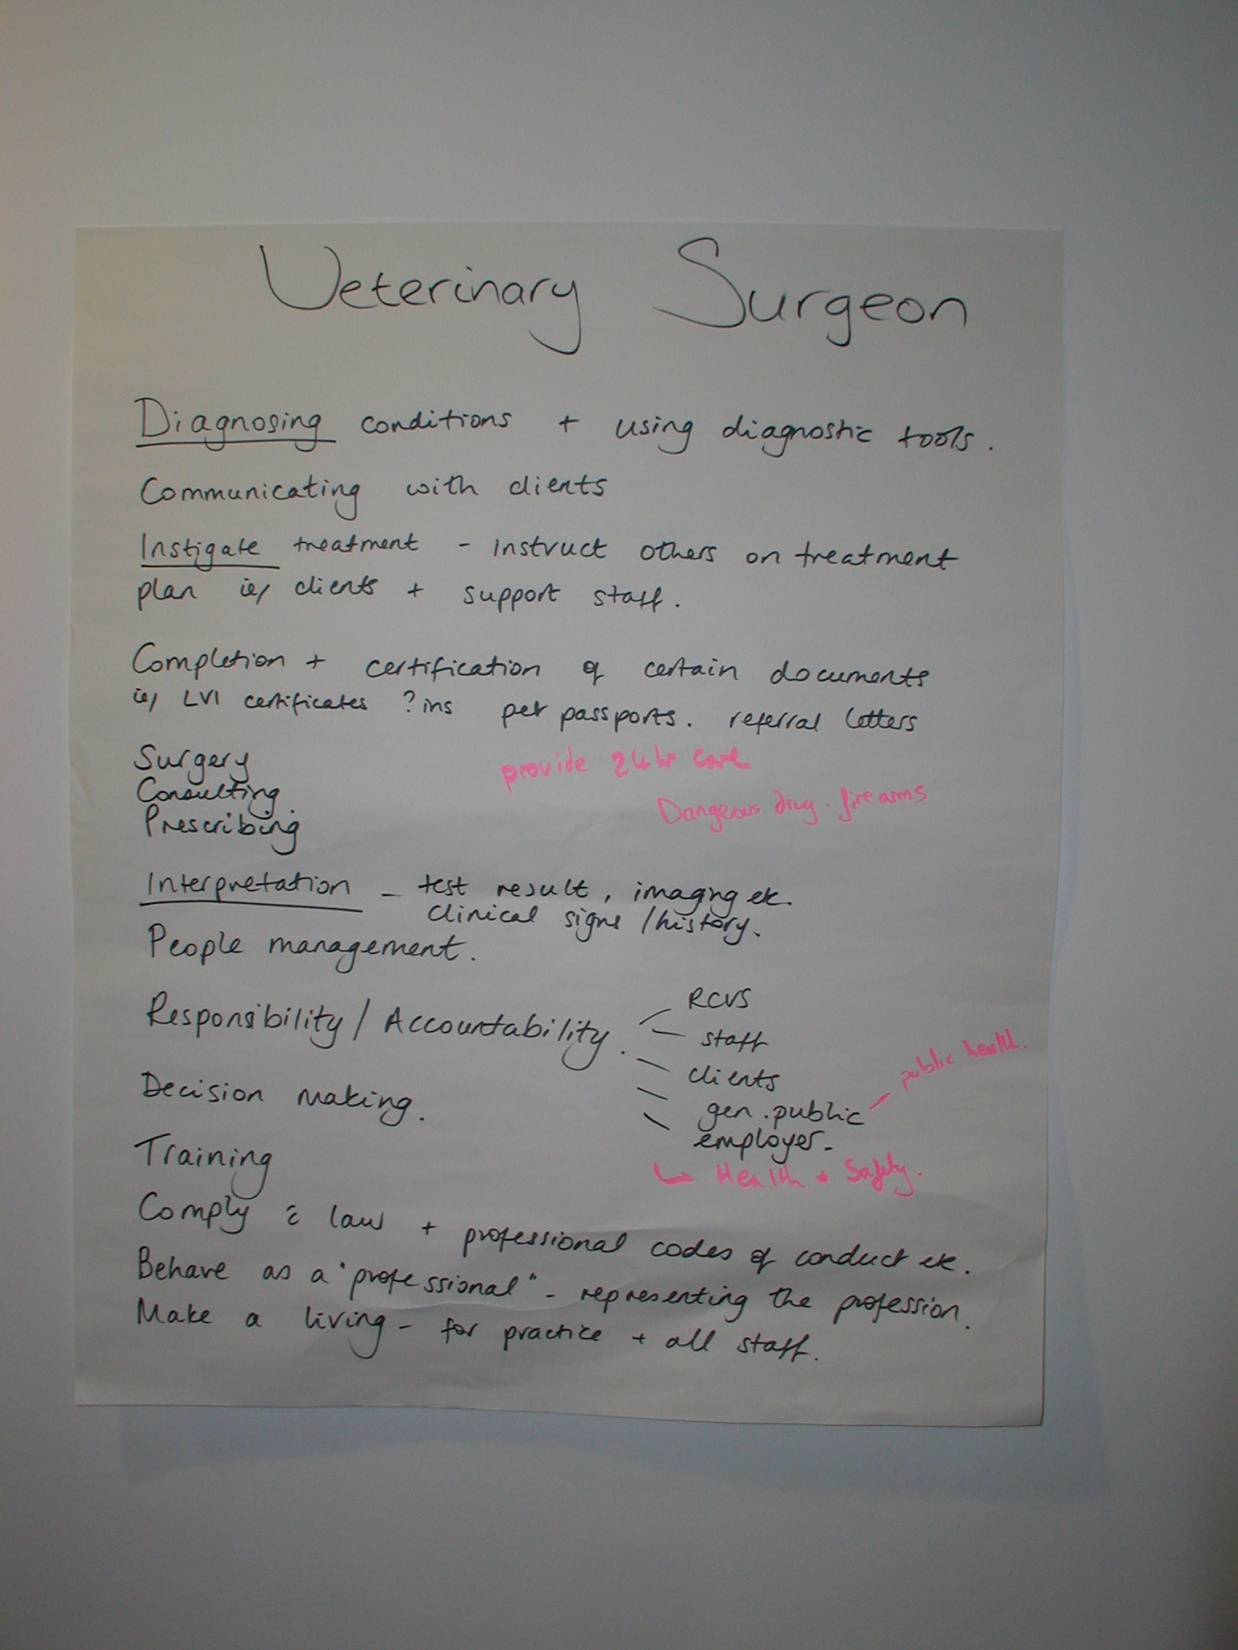 Veterinary Surgeon
Diagnosing conditions + using diagnostic tools.
Communicating with clients
Instigate treatment - instruct others on treatment
plan ie/ clients + support staff.
Completion + certification of certain documents
ie/ LVI certificates ?ins pet passports. referral letters
Surgery
provide 24hr care
Consulting
Dangerous drug. fire arms
Prescribing
Interpretation - test result, imagng etc.
clinical signs / history.
People management.
Responsibility / Accountability.
RCVS
staff
clients
gen. public
public health.
employer -
Health + Safety.
Decision making.
Training
Comply c̄ law + professional codes of conduct etc.
Behave as a "professional" - representing the profession.
Make a living - for practice + all staff.